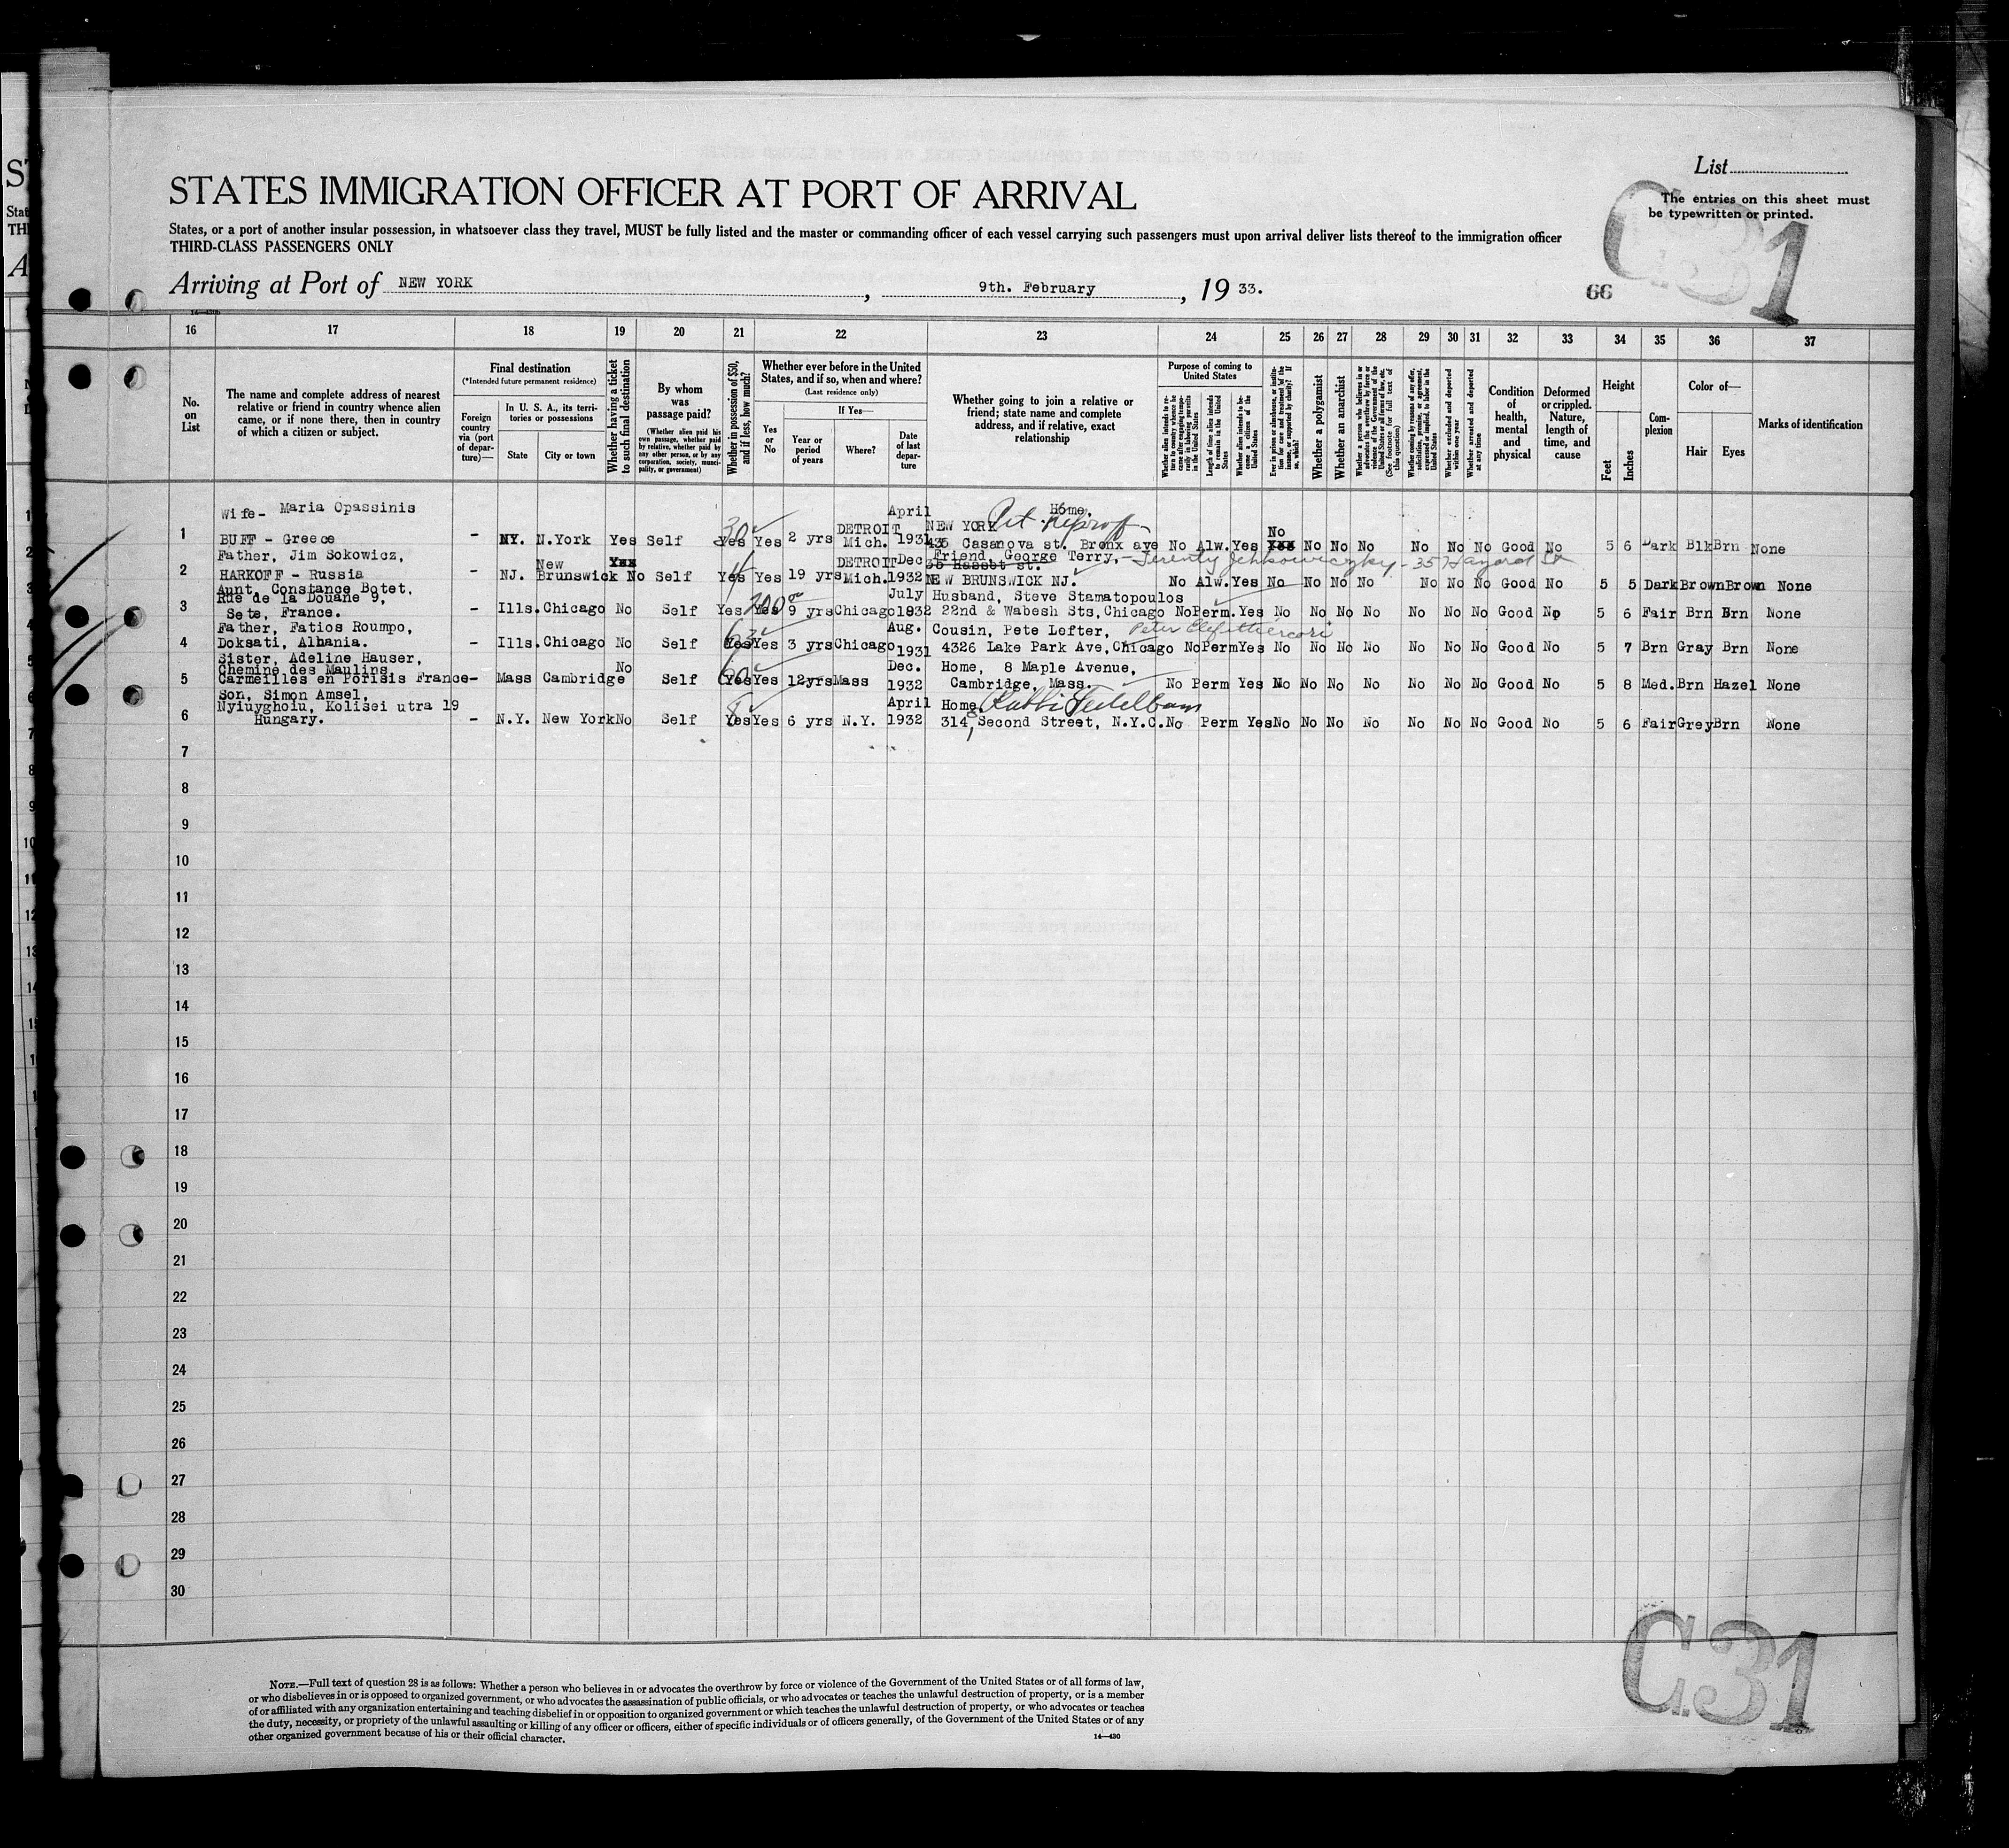 List
STATES IMMIGRATION OFFICER AT PORT OF ARRIVAL
The entries on this sheet must
be typewritten or printed.
States, or a port of another insular possession, in whatsoever class they travel, MUST be fully listed and the master or commanding officer of each vessel carrying such passengers must upon arrival deliver lists thereof to the immigration officer
THIRD-CLASS PASSENGERS ONLY
Arriving at Port of NEW YORK, 9th. February, 19 33.
66
C31
16 17 18 19 20 21 22 23 24 25 26 27 28 29 30 31 32 33 34 35 36 37
No. on List
The name and complete address of nearest
relative or friend in country whence alien
came, or if none there, then in country
of which a citizen or subject.
Final destination
(*Intended future permanent residence)
Foreign country via (port of departure)—
In U. S. A., its territories or possessions
State
City or town
Whether having a ticket to such final destination
By whom was passage paid?
(Whether alien paid his own passage, whether paid by relative, whether paid by any other person, or by any corporation, society, municipality, or government)
Whether in possession of $50, and if less, how much?
Whether ever before in the United States, and if so, when and where?
(Last residence only)
Yes or No
If Yes—
Year or period of years
Where?
Date of last departure
Whether going to join a relative or
friend; state name and complete
address, and if relative, exact
relationship
Purpose of coming to United States
Whether alien intends to return to country whence he came after engaging temporarily in laboring pursuits in the United States
Length of time alien intends to remain in the United States
Whether alien intends to become a citizen of the United States
Ever in prison or almshouse, or institution for care and treatment of the insane, or supported by charity? If so, which?
Whether a polygamist
Whether an anarchist
Whether a person who believes in or advocates the overthrow by force or violence of the Government of the United States or all forms of law, etc. (See footnote for full text of this question)
Whether coming by reason of any offer, solicitation, promise, or agreement, expressed or implied, to labor in the United States
Whether excluded and deported within one year
Whether arrested and deported at any time
Condition of health, mental and physical
Deformed or crippled. Nature, length of time, and cause
Height
Feet
Inches
Complexion
Color of—
Hair
Eyes
Marks of identification
Wife- Maria Opassinis April Home.
1 BUFF - Greece - NY. N.York Yes Self 30 Yes Yes 2 yrs DETROIT Mich. 1931 NEW YORK 435 Casanova st. Bronx ave No Alw. Yes No No No No No No No Good No 5 6 Dark Blk Brn None
Father, Jim Sokowicz,
2 HARKOFF - Russia - NJ. New Brunswick No Self Yes Yes 19 yrs DETROIT Mich. Dec 1932 Friend, George Terry, 35 Hassot st. NEW BRUNSWICK NJ. No Alw. Yes No No No No No No No Good No 5 5 Dark Brown Brown None
Aunt, Constance Botet.
Rue de la Douane 9,
3 Sete, France. - Ills. Chicago No Self Yes 200 Yes 9 yrs Chicago July 1932 Husband, Steve Stamatopoulos 22nd & Wabesh Sts, Chicago No Perm. Yes No No No No No No No Good No 5 6 Fair Brn Brn None
Father, Fatios Roumpo,
4 Doksati, Albania. - Ills. Chicago No Self Yes Yes 3 yrs Chicago Aug. 1931 Cousin, Pete Lefter, 4326 Lake Park Ave, Chicago No Perm Yes No No No No No No No Good No 5 7 Brn Gray Brn None
Sister, Adeline Hauser,
Chemine des Maulins
5 Carmeilles en Porisis France - Mass Cambridge No Self 60 Yes Yes 12yrs Mass Dec. 1932 Home, 8 Maple Avenue, Cambridge, Mass. No Perm Yes No No No No No No No Good No 5 8 Med. Brn Hazel None
Son, Simon Amsel,
Nyiuygholu, Kolisei utra 19
6 Hungary. - N.Y. New York No Self Yes Yes 6 yrs N.Y. April 1932 Home, 314 Second Street, N.Y.C. No Perm Yes No No No No No No No Good No 5 6 Fair Grey Brn None
7
8
9
10
11
12
13
14
15
16
17
18
19
20
21
22
23
24
25
26
27
28
29
30
C.31
NOTE.—Full text of question 28 is as follows: Whether a person who believes in or advocates the overthrow by force or violence of the Government of the United States or of all forms of law,
or who disbelieves in or is opposed to organized government, or who advocates the assassination of public officials, or who advocates or teaches the unlawful destruction of property, or is a member
of or affiliated with any organization entertaining and teaching disbelief in or opposition to organized government or which teaches the unlawful destruction of property, or who advocates or teaches
the duty, necessity, or propriety of the unlawful assaulting or killing of any officer or officers, either of specific individuals or of officers generally, of the Government of the United States or of any
other organized government because of his or their official character.
14—430